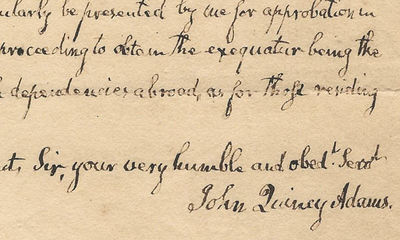 ularly be presented by me for approbation in
proceeding to obtain the exequatur being the
dependencies abroad, as for those residing
Sir, your very humble and obedt. Servt.
John Quincy Adams.